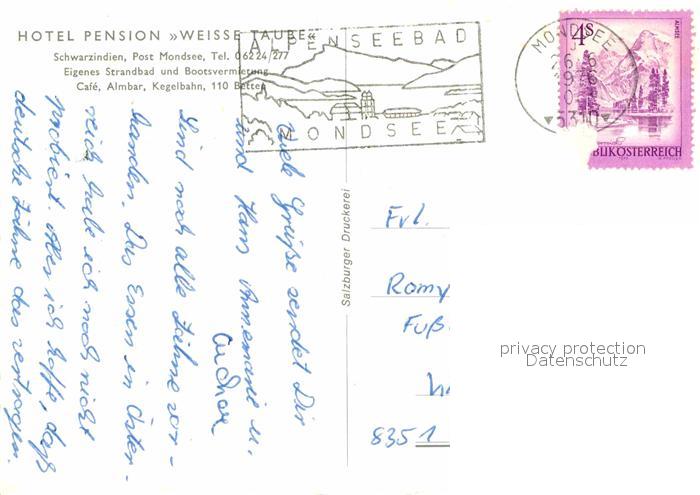 HOTEL PENSION »WEISSE TAUBE«
Schwarzindien, Post Mondsee, Tel. 06224/277
Eigenes Strandbad und Bootsvermietung
Café, Almbar, Kegelbahn, 110 Betten
ALPENSEEBAD
MONDSEE
MONDSEE
5310
4S
ALMSEE
REPUBLIK ÖSTERREICH
Salzburger Druckerei
Viele Grüße sendet Dir
und Hans Annemarie u.
Sind noch alle Zähne vor-
handen. Das Essen in Öster-
reich habe ich noch nicht
probiert. Aber ich hoffe, daß
deutsche Zähne das vertragen.
Frl.
Romy
Fuß
8351
privacy protection
Datenschutz